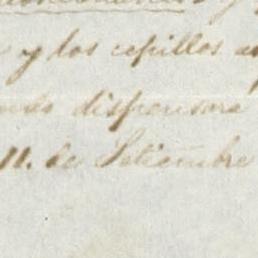 y dos cepillos
dispensara
11. de Setiembre